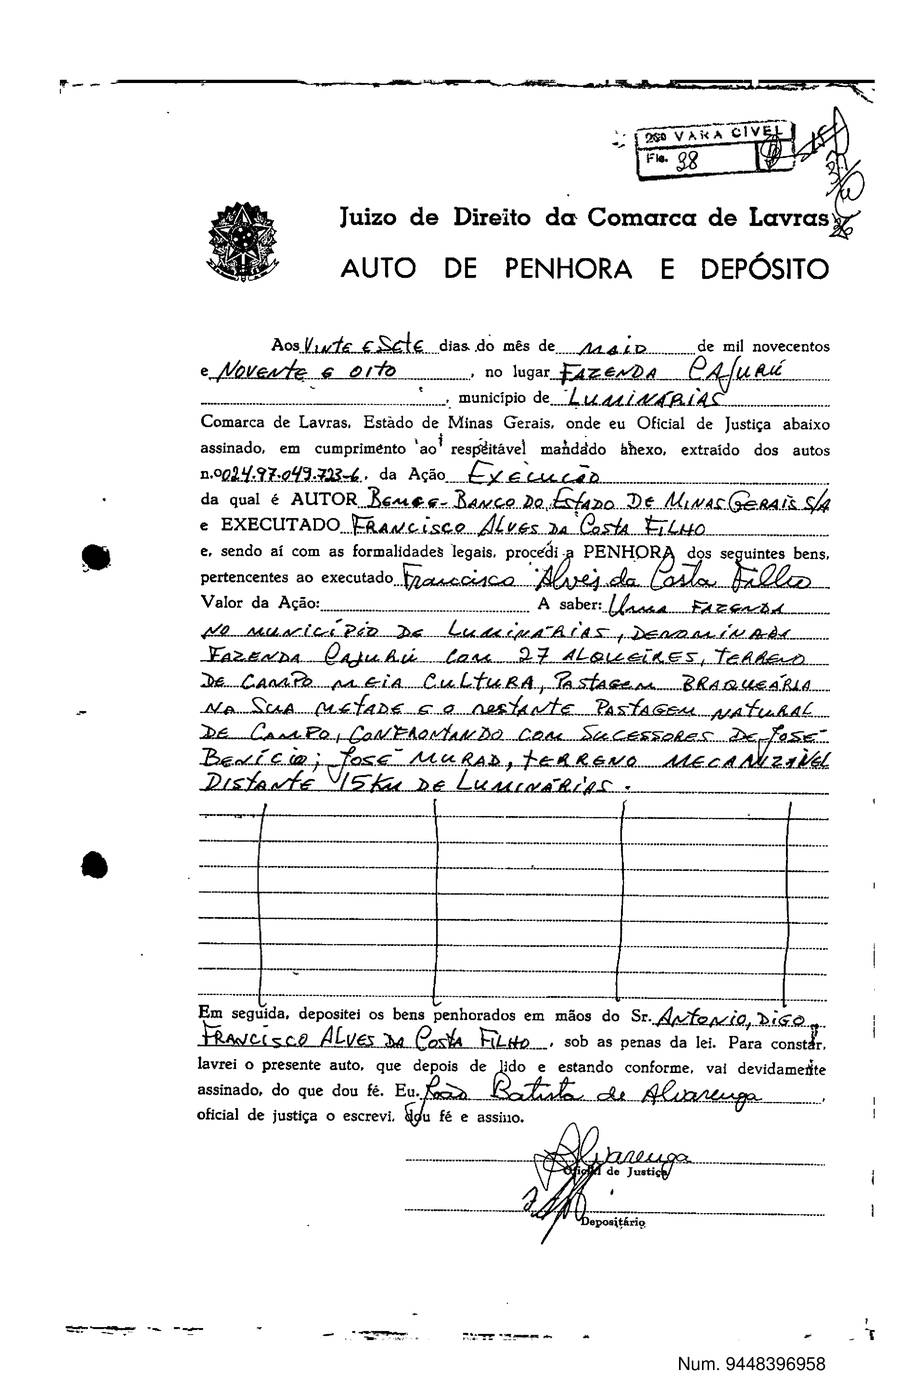 2ª VARA CIVEL
Fls. 38
Juizo de Direito da Comarca de Lavras
AUTO DE PENHORA E DEPÓSITO
Aos Vinte e Sete dias do mês de maio de mil novecentos
e Novente e oito, no lugar Fazenda Cajurú
, município de Luminárias
Comarca de Lavras, Estado de Minas Gerais, onde eu Oficial de Justiça abaixo
assinado, em cumprimento ao respeitável mandado anexo, extraído dos autos
n.º 024.97.049.723-6, da Ação Execução
da qual é AUTOR Bemge - Banco do Estado de Minas Gerais S/A
e EXECUTADO Francisco Alves da Costa Filho
e, sendo aí com as formalidades legais, procedi a PENHORA dos seguintes bens,
pertencentes ao executado Francisco Alves da Costa Filho
Valor da Ação: A saber: Uma fazenda
no município de Luminárias, denominada
Fazenda Cajurú com 27 alqueires, terreno
de campo meia cultura, pastagem braqueária
na sua metade e o restante pastagem natural
de campo, confrontando com sucessores de José
Benício; José Murad, terreno mecanizável
distante 15 Km de Luminárias.
Em seguida, depositei os bens penhorados em mãos do Sr. Antonio, digo
Francisco Alves da Costa Filho, sob as penas da lei. Para constar,
lavrei o presente auto, que depois de lido e estando conforme, vai devidamente
assinado, do que dou fé. Eu, João Batista de Alvarenga,
oficial de justiça o escrevi, dou fé e assino.
Alvarenga
Oficial de Justiça
Depositário
Num. 9448396958